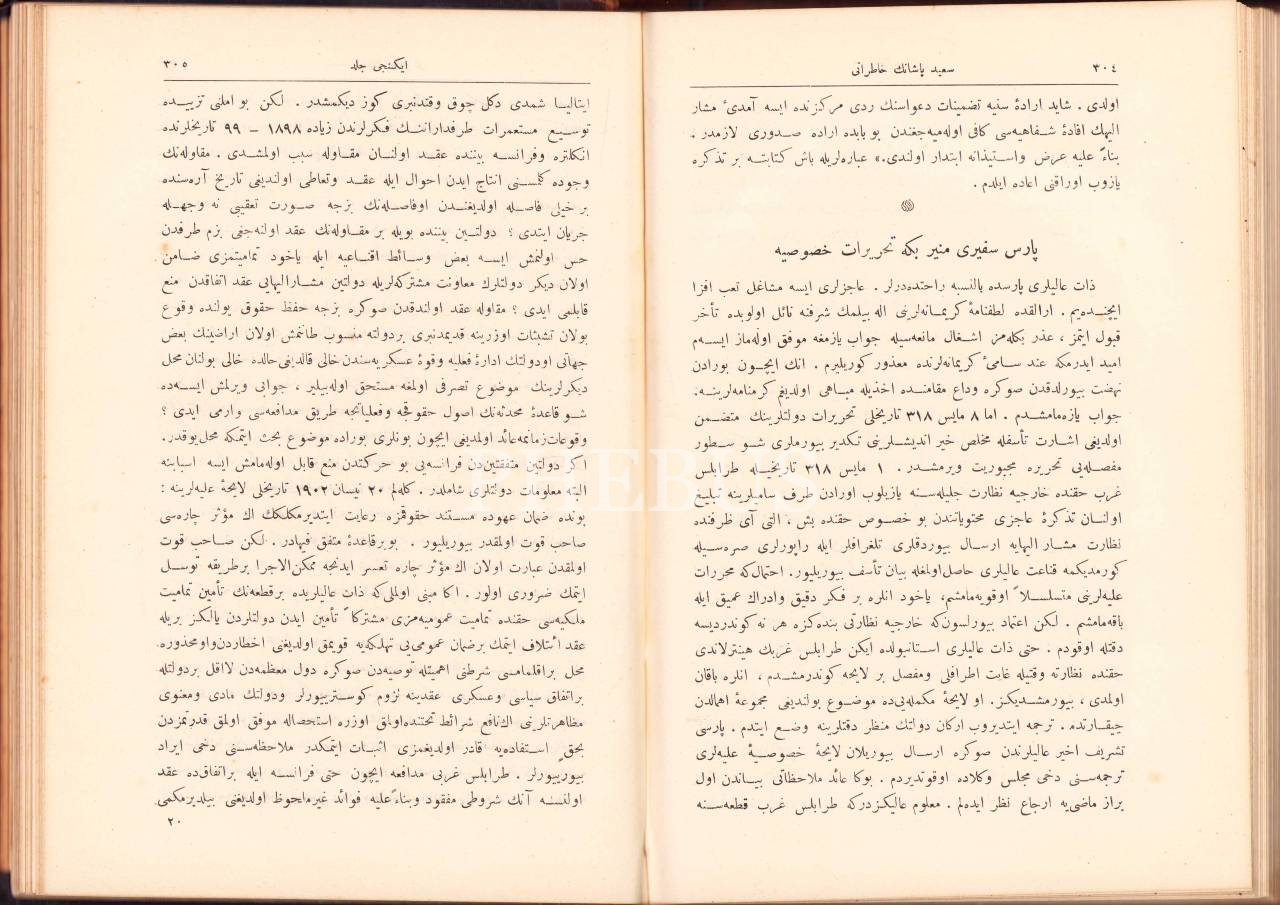 ٣٠٤
سعيد پاشانك خاطراتى
اولدى . شايد ارادۀ سنيه تضمينات دعواسنك ردى مركزنده ايسه آمدىء مشار
اليهك افادۀ شفاهيه‌سى كافى اوله‌ميه‌جغندن بو بابده اراده صدورى لازمدر .
بناءً عليه عرض واستيذانه ابتدار اولندى.» عباره‌لريله باش كتابته بر تذكره
يازوب اوراقنى اعاده ايلدم .
پارس سفيرى منير بكه تحريرات خصوصيه
ذات عاليلرى پارسده بالنسبه راحتده‌درلر . عاجزلرى ايسه مشاغل تعب افزا
ايچنده‌يم . ارالقده لطفنامۀ كريمانه‌لرينى اله بيلمك شرفنه نائل اولوبده تأخر
قبول ايتمز ، عذر بكله‌مز اشغال مانعه‌سيله جواب يازمغه موفق اوله‌ماز ايسه‌م
اميد ايدرمكه عند سامىء كريمانه‌لرنده معذور كوريليرم . انك ايچون بورادن
نهضت بيورلدقدن صوكره وداع مقامنده اخذيله مباهى اولديغم كرمنامه‌لرينه.
جواب يازه‌مامشدم . اما ٨ مايس ٣١٨ تاريخلى تحريرات دولتلرينك متضمن
اولديغى اشارت تأسفله مخلص خير انديشلرينى تكدير بيورملرى شو سطور
مفصله‌يى تحريره مجبوريت ويرمشدر . ١ مايس ٣١٨ تاريخيله طرابلس
غرب حقنده خارجيه نظارت جليله‌سنه يازيلوب اورادن طرف ساميلرينه تبليغ
اولنان تذكرۀ عاجزى محتوياتندن بو خصوص حقنده بش ، التى آى ظرفنده
نظارت مشار اليهايه ارسال بيوردقلرى تلغرافلر ايله راپورلرى صره‌سيله
كورمديكمه قناعت عاليلرى حاصل اولمغله بيان تأسف بيوريليور. احتمالكه محررات
عليه‌لرينى متسلسلاً اوقويه‌مامشم، ياخود انلره بر فكر دقيق وادراك عميق ايله
باقه‌مامشم . لكن اعتماد بيورلسونكه خارجيه نظارتى بنده‌كزه هر نه كوندرديسه
دقتله اوقودم . حتى ذات عاليلرى استانبولده ايكن طرابلس غربك هينترلاندى
حقنده نظارته وقتيله غايت اطرافلى ومفصل بر لايحه كوندرمشدم ، انلره باقان
اولمدى ، بيورمشديكز. او لايحۀ مكمله‌يى‌ده موضوع بولنديغى مجموعۀ اهمالدن
چيقارتدم . ترجمه ايتديروب اركان دولتك منظر دقتلرينه وضع ايتدم . پارسى
تشريف اخير عاليلرندن صوكره ارسال بيوريلان لايحۀ خصوصيۀ عليه‌لرى
ترجمه‌سنى دخى مجلس وكلاده اوقوتديردم . بوكا عائد ملاحظاتى بياندن اول
براز ماضى‌يه ارجاع نظر ايده‌لم . معلوم عاليكزدركه طرابلس غرب قطعه‌سنه
ايكنجى جلد
٣٠٥
ايتاليا شمدى دكل چوق وقتدنبرى كوز ديكمشدر . لكن بو املنى تزييده
توسيع مستعمرات طرفدارانك فكرلرندن زياده ١٨٩٨ – ٩٩ تاريخلرنده
انكلتره وفرانسه بيننده عقد اولنان مقاوله سبب اولمشدى . مقاوله‌نك
وجوده كلمسنى انتاج ايدن احوال ايله عقد وتعاطى اولنديغى تاريخ آره‌سنده
بر خيلى فاصله اولديغندن اوفاصله‌نك بزجه صورت تعقيبى نه وجهله
جريان ايتدى ؟ دولتين بيننده بويله بر مقاوله‌نك عقد اولنه‌جغى بزم طرفدن
حس اولنمش ايسه بعض وسائط اقناعيه ايله ياخود تماميتمزى ضامن
اولان ديكر دولتلرك معاونت مشتركه‌لريله دولتين مشاراليهايى عقد اتفاقدن منع
قابلمى ايدى ؟ مقاوله عقد اولندقدن صوكره بزجه حفظ حقوق يولنده وقوع
بولان تشبثات اوزرينه قديمدنبرى بردولته منسوب طانمش اولان اراضينك بعض
جهاتى اودولتك ادارۀ فعليه وقوۀ عسكريه‌سندن خالى قالديغى حالده خالى بولنان محل
ديكرلرينك موضوع تصرفى اولمغه مستحق اوله‌بيلير ، جوابى ويرلمش ايسه‌ده
شو قاعدۀ محدثه‌نك اصول حقوقجه وفعلياتجه طريق مدافعه‌سى وارمى ايدى ؟
وقوعات زمانمه عائد اولمديغى ايچون بونلرى بوراده موضوع بحث ايتمكه محل يوقدر.
اكر دولتين متفقتين‌دن فرانسه‌يى بو حركتدن منع قابل اوله‌مامش ايسه اسبابنه
البته معلومات دولتلرى شاملدر . كله‌لم ٢٠ نيسان ١٩٠٢ تاريخلى لايحۀ عليه‌لرينه :
بونده ضمان عهوده مستند حقوقمزه رعايت ايتديرمكلكك اك مؤثر چاره‌سى
صاحب قوت اولمقدر بيوريليور . بوبرقاعدۀ متفق فيهادر . لكن صاحب قوت
اولمقدن عبارت اولان اك مؤثر چاره تعسر ايدنجه ممكن‌الاجرا برطريقه توسل
ايتمك ضرورى اولور . اكا مبنى اولملى‌كه ذات عاليلريده برقطعه‌نك تأمين تماميت
ملكيه‌سى حقنده تماميت عموميه‌مزى مشتركاً تأمين ايدن دولتلردن يالكز بريله
عقد ائتلاف ايتمك برضمان عمومى‌يى تهلكه‌يه قويمق اولديغنى اخطاردن‌واومحذوره.
محل براقلمامسى شرطنى اهميتله توصيه‌دن صوكره دول معظمه‌دن لااقل بردولتله
براتفاق سياسى وعسكرى عقدينه لزوم كوستريورلر ودولتك مادى ومعنوى
مظاهرتلرينى اك‌نافع شرائط تحتنده‌اولمق اوزره استحصاله موفق اولمق قدرتمزدن
بحق استفاده‌يه قادر اولديغمزى اثبات ايتمكدر ملاحظه‌سنى دخى ايراد
بيورييورلر . طرابلس غربى مدافعه ايچون حتى فرانسه ايله براتفاق‌ده عقد
اولنسه آنك شروطى مفقود وبناءً‌عليه فوائد غيرملحوظ اولديغنى بيلديرمكمى
٢٠
PHEBUS